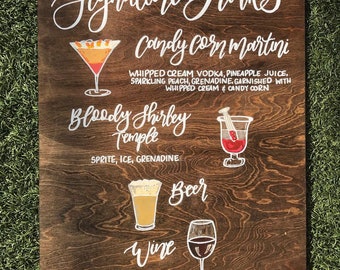 Signature Drinks
Candy Corn Martini
WHIPPED CREAM VODKA, PINEAPPLE JUICE,
SPARKLING PEACH, GRENADINE, GARNISHED WITH
WHIPPED CREAM & CANDY CORN
Bloody Shirley
Temple
SPRITE, ICE, GRENADINE
Beer
Wine